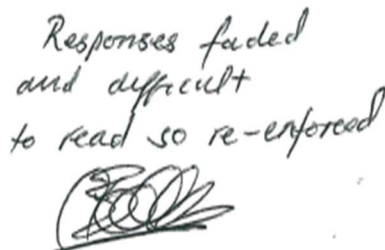 Responses faded
and difficult
to read so re-enforced